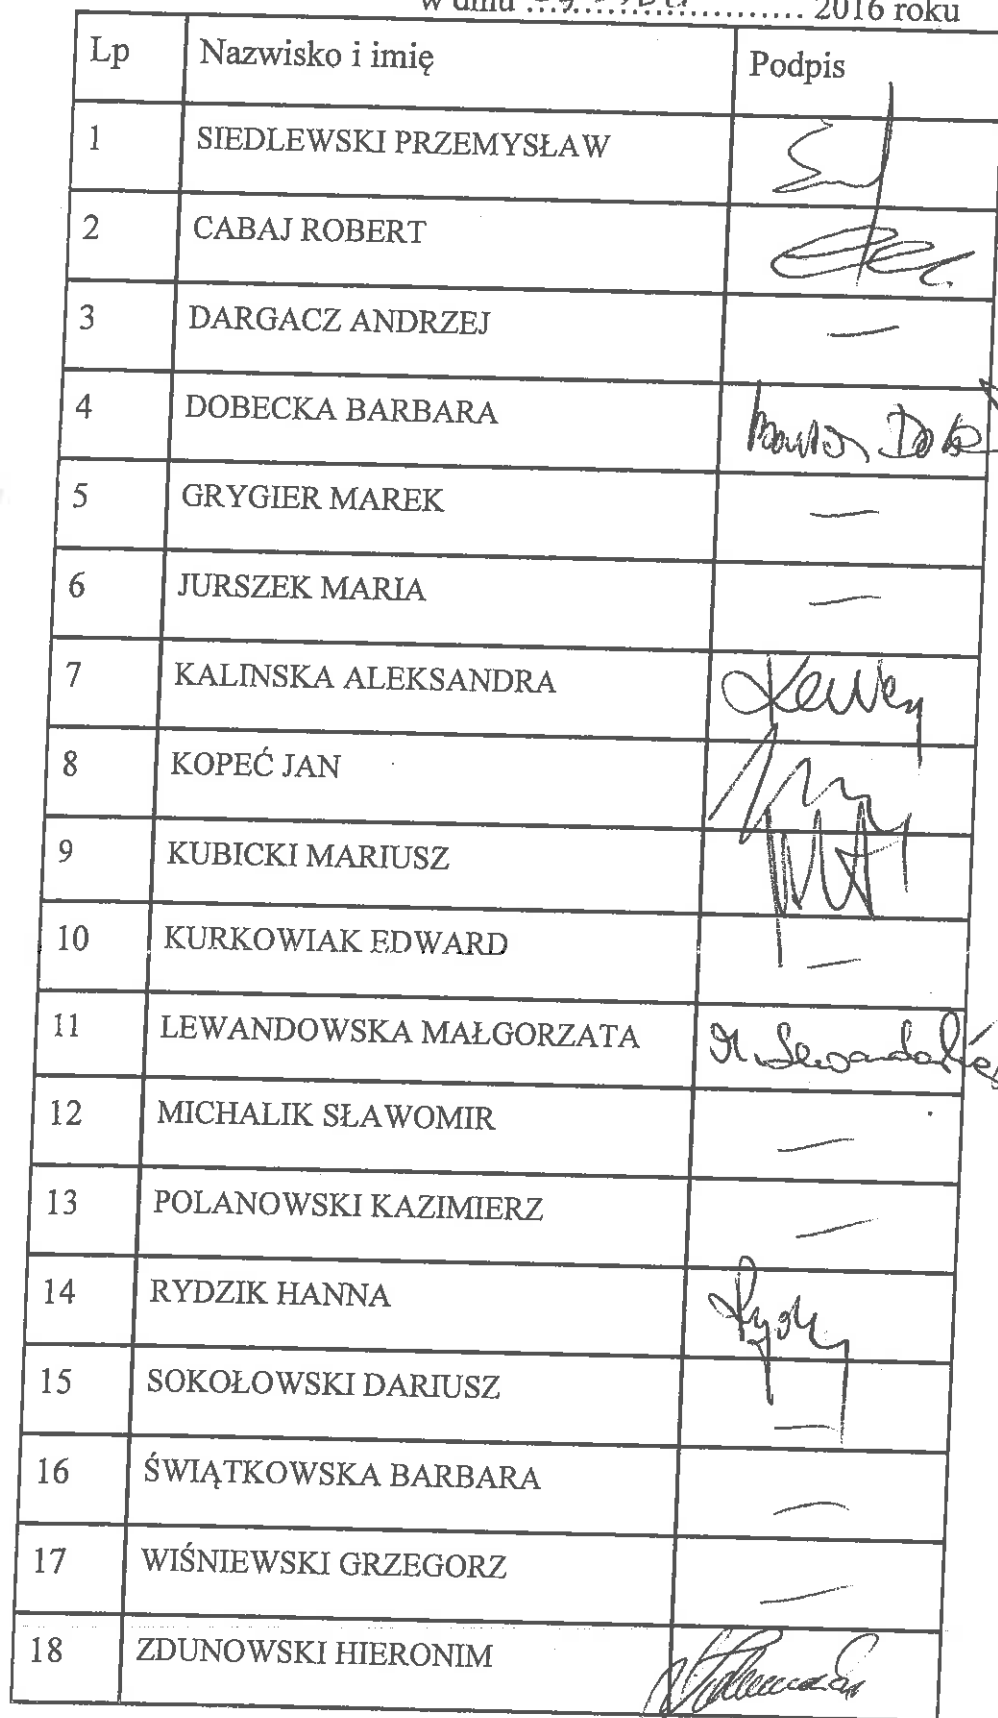 w dniu ........................ 2016 roku
Lp Nazwisko i imię Podpis
1 SIEDLEWSKI PRZEMYSŁAW
2 CABAJ ROBERT
3 DARGACZ ANDRZEJ —
4 DOBECKA BARBARA
5 GRYGIER MAREK —
6 JURSZEK MARIA —
7 KALINSKA ALEKSANDRA
8 KOPEĆ JAN
9 KUBICKI MARIUSZ
10 KURKOWIAK EDWARD —
11 LEWANDOWSKA MAŁGORZATA
12 MICHALIK SŁAWOMIR —
13 POLANOWSKI KAZIMIERZ —
14 RYDZIK HANNA
15 SOKOŁOWSKI DARIUSZ —
16 ŚWIĄTKOWSKA BARBARA —
17 WIŚNIEWSKI GRZEGORZ —
18 ZDUNOWSKI HIERONIM